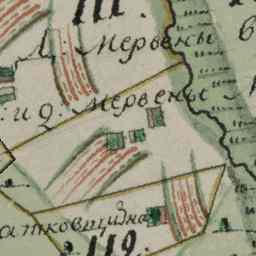 III.
Д: Мервены
: и д. Мервены
атковщизна
119.